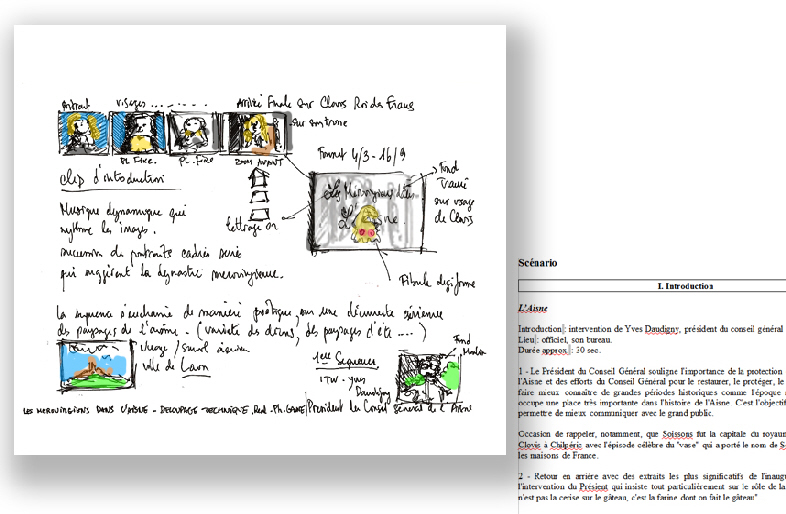 Portrait Visages .... Arrivée Finale sur Clovis Roi des Francs
sur son trone
PL Fixe. P... Fixe ZOOM AVANT
Format 4/3 - 16/9
Clip d'introduction
Fond
sur visage
de Clovis
Musique dynamique qui
rythme les images.
Lettrage on
Les Mérovingiens dans
L'Aisne
succession de portraits cadrés serrés
qui suggèrent la dynastie mérovingienne.
Fibule
La séquence s'enchaîne de manière poétique, sur une découverte aérienne
des paysages de l'axone. (variété des , des paysages d'été ....)
ville de Laon
1ere Séquence
ITW - yves
Daudigny
Fond
LES MEROVINGIENS DANS L'AISNE - DECOUPAGE TECHNIQUE. Réal. Ph. Président du Conseil Général de l'Aisne
Scénario
I. Introduction
L'Aisne
Introduction : intervention de Yves Daudigny, président du conseil général
Lieu : officiel, son bureau.
Durée approx. : 30 sec.
1 - Le Président du Conseil Général souligne l'importance de la protection
l'Aisne et des efforts du Conseil Général pour le restaurer, le protéger, le
faire mieux connaître de grandes périodes historiques comme l'époque
occupe une place très importante dans l'histoire de l'Aisne. C'est l'objectif
permettre de mieux communiquer avec le grand public.
Occasion de rappeler, notamment, que Soissons fut la capitale du royaum
Clovis à Chilpéric avec l'épisode célèbre du "vase" qui a porté le nom de S
les maisons de France.
2 - Retour en arrière avec des extraits les plus significatifs de l'inaug
l'intervention du Président qui insiste tout particulièrement sur le rôle de la
n'est pas la cerise sur le gâteau, c'est la farine dont on fait le gâteau"